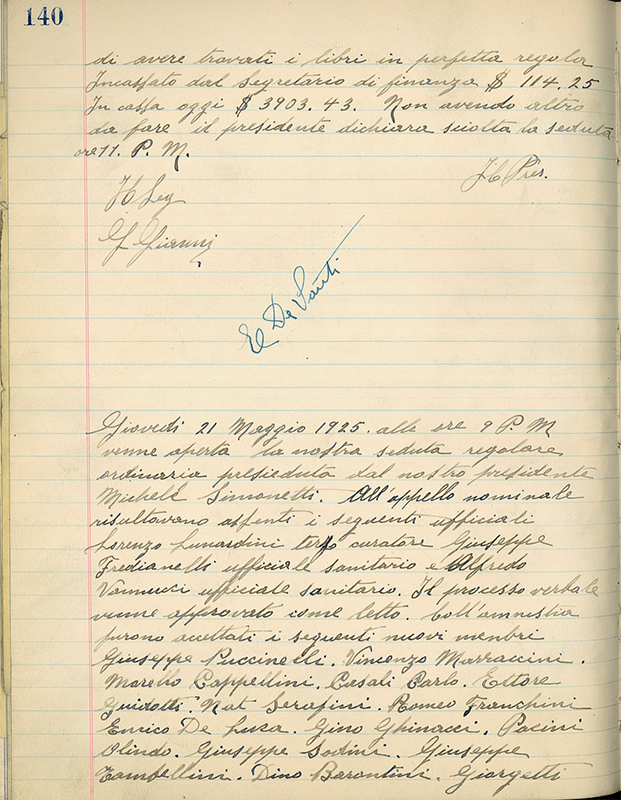 140
di avere trovati i libri in perfetta regola
Incassato dal Segretario di finanza $ 114.25
In cassa oggi $ 3903.43. Non avendo altro
da fare il presidente dichiara sciolta la seduta
ore 11. P. M.
Il Pres.
Il Seg
G Gianni
E De Santi
Giovedi 21 Maggio 1925. alle ore 9 P. M
venne aperta la nostra seduta regolare
ordinaria presieduta dal nostro presidente
Michele Simonetti. All'appello nominale
risultavano assenti i seguenti ufficiali
Lorenzo Lunardini terzo curatore Giuseppe
Fredianelli ufficiale sanitario e Alfredo
Vannucci ufficiale sanitario. Il processo verbale
venne approvato come letto. Coll'amnistia
furono accettati i seguenti nuovi menbri
Giuseppe Puccinelli. Vincenzo Marraccini.
Morello Cappellini. Casali Carlo. Ettore
Guidotti. Nat Serafini. Romeo Franchini
Enrico De Luca. Gino Ghinacci. Pacini
Olindo. Giuseppe Sodini. Giuseppe
Zambellini. Dino Barontini. Giorgetti